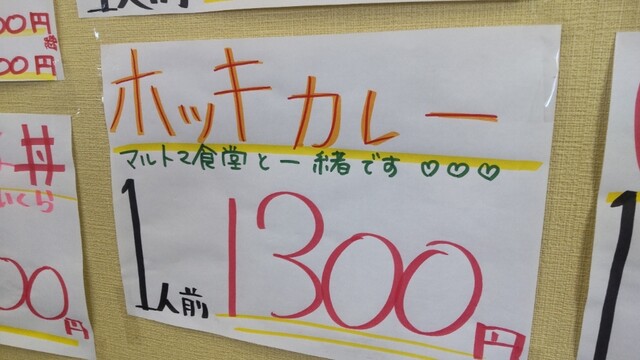 ホッキカレー
マルトマ食堂と一緒です♡♡♡
1人前 1300円
00円
00円
丼
いくら
00円
1